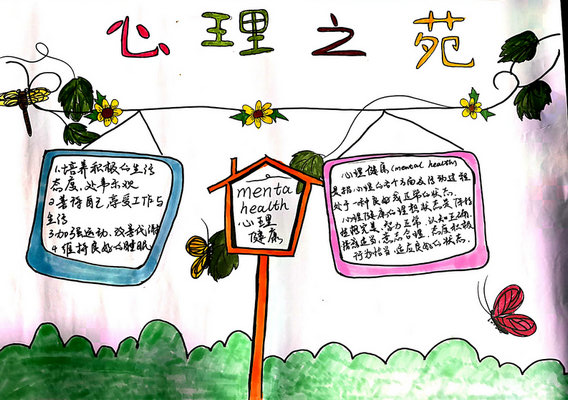 心理之苑
1.培养积极的生活
态度,处事乐观
2.善待自己,享受工作与
生活
3.加强运动,改善代谢
4.维持良好的睡眠
menta
health
心理
健康
心理健康(mental health)
是指心理的各个方面及活动过程
处于一种良好或正常的状态.
心理健康的理想状态是保持
性格完美、智力正常、认知正确、
情感适当、意志合理、态度积极、
行为恰当、适应良好的状态.